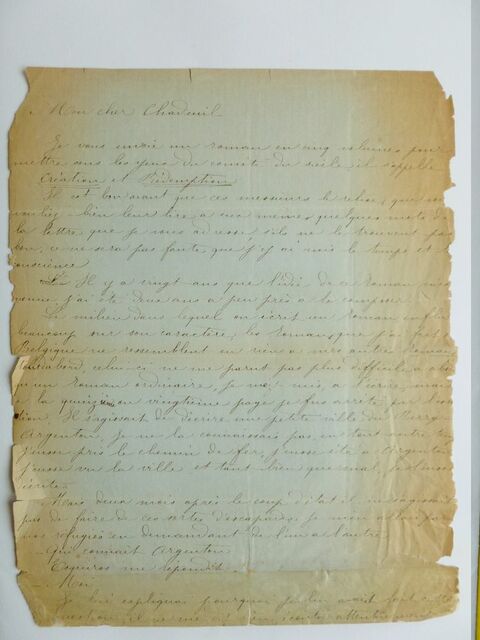 Mon cher Chadeuil
Je vous envoie un roman en cinq volumes pour
mettre sous les yeux du comité du siècle, il s'appelle
Création et Rédemption
Il est bon avant que ces messieurs le refuse, que vous
vouliez bien leur lire a eux memes quelques mots de
la lettre que je vous adresse, s'ils ne le trouvent pas
bon, ce ne sera pas faute que j'y ai mis le temps et
conscience.
Il y a vingt ans que l'idée de ce roman
j'ai été deux ans a peu près a le composer
Le milieu dans lequel on écrit un roman
beaucoup sur son caractère, les romans que j'ai fait
Belgique ne ressemblent en rien a mes autres romans
abord, celui ci ne me parut pas plus difficile a
qu'un roman ordinaire, je me mis a l'oeuvre, mais
a la quinzième ou vingtième page je fus arrêté par
Il s'agissait de décrire une petite ville du Berry
Argenton, Je ne la connaissais pas, en tout autre
j'eusse pris le chemin de fer, j'eusse été a Argenton
j'eusse vu la ville et tant bien que mal, je l'eusse
Mais deux mois après le coup d'état il ne s'agissait
pas de faire de ces sortes d'escapades je m'en allai
nos refugiés en demandant de l'un a l'autre
Qui connait Argenton
Esquiros me répondit
Moi
Je lui expliquai pourquoi je lui avait fait cette
question, il ne me